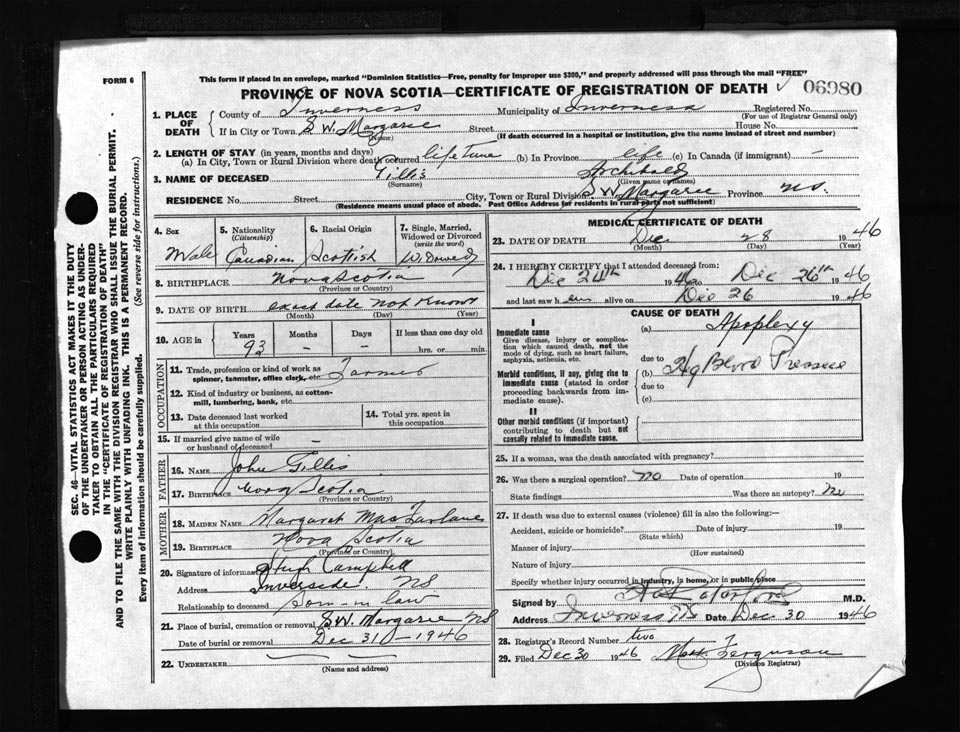 FORM 6
This form if placed in an envelope, marked "Dominion Statistics—Free, penalty for improper use $300," and properly addressed will pass through the mail "FREE"
PROVINCE OF NOVA SCOTIA—CERTIFICATE OF REGISTRATION OF DEATH
06980
1. PLACE OF DEATH
County of Inverness Municipality of Inverness Registered No.
(For use of Registrar General only)
If in City or Town S.W. Margaree Street House No.
(Name) (If death occurred in a hospital or institution, give the name instead of street and number)
2. LENGTH OF STAY (in years, months and days)
(a) In City, Town or Rural Division where death occurred life time (b) In Province life (c) In Canada (if immigrant) —
3. NAME OF DECEASED Gillis Archibald
(Surname) (Given name or names)
RESIDENCE No. Street City, Town or Rural Division S.W. Margaree Province NS.
(Residence means usual place of abode. Post Office Address for residents in rural parts not sufficient)
4. Sex
Male
5. Nationality
(Citizenship)
Canadian
6. Racial Origin
Scottish
7. Single, Married, Widowed or Divorced
(write the word)
Widowed
8. BIRTHPLACE Nova Scotia
(Province or Country)
9. DATE OF BIRTH exact date not known
(Month) (Day) (Year)
10. AGE in
Years Months Days If less than one day old
93 — — hrs. or min.
OCCUPATION
11. Trade, profession or kind of work as spinner, teamster, office clerk, etc. Farmer
12. Kind of industry or business, as cotton-mill, lumbering, bank, etc.
13. Date deceased last worked at this occupation
14. Total yrs. spent in this occupation
15. If married give name of wife or husband of deceased —
FATHER
16. NAME John Gillis
17. BIRTHPLACE Nova Scotia
(Province or Country)
MOTHER
18. MAIDEN NAME Margaret MacFarlane
19. BIRTHPLACE Nova Scotia
(Province or Country)
20. Signature of informant Hugh Campbell
Address Inverside NS
Relationship to deceased Son-in law
21. Place of burial, cremation or removal S.W. Margaree NS
Date of burial or removal Dec 31 - 1946
22. UNDERTAKER
(Name and address)
MEDICAL CERTIFICATE OF DEATH
23. DATE OF DEATH Dec 28 1946
(Month) (Day) (Year)
24. I HEREBY CERTIFY that I attended deceased from:
Dec 24th 1946 to Dec 26th 1946
and last saw him alive on Dec 26 1946
CAUSE OF DEATH
I
Immediate cause
Give disease, injury or complication which caused death, not the mode of dying, such as heart failure, asphyxia, asthenia, etc.
(a) Apoplexy
due to
Morbid conditions, if any, giving rise to immediate cause (stated in order proceeding backwards from immediate cause).
(b) Hg Blood Pressure
due to
(c)
II
Other morbid conditions (if important) contributing to death but not causally related to immediate cause.
25. If a woman, was the death associated with pregnancy?
26. Was there a surgical operation? no Date of operation 19
State findings Was there an autopsy? no
27. If death was due to external causes (violence) fill in also the following:—
Accident, suicide or homicide? Date of injury 19
(State which)
Manner of injury
(How sustained)
Nature of injury
Specify whether injury occurred in industry, in home, or in public place
Signed by M.D.
Address Inverness NS Date Dec 30 1946
28. Registrar's Record Number two
29. Filed Dec 30 1946 Ferguson
(Division Registrar)
SEC. 46—VITAL STATISTICS ACT MAKES IT THE DUTY
OF THE UNDERTAKER OR PERSON ACTING AS UNDER-
TAKER TO OBTAIN ALL THE PARTICULARS REQUIRED
IN THE "CERTIFICATE OF REGISTRATION OF DEATH"
AND TO FILE THE SAME WITH THE DIVISION REGISTRAR WHO SHALL ISSUE THE BURIAL PERMIT.
WRITE PLAINLY WITH UNFADING INK. THIS IS A PERMANENT RECORD.
Every item of information should be carefully supplied. (See reverse side for instructions.)